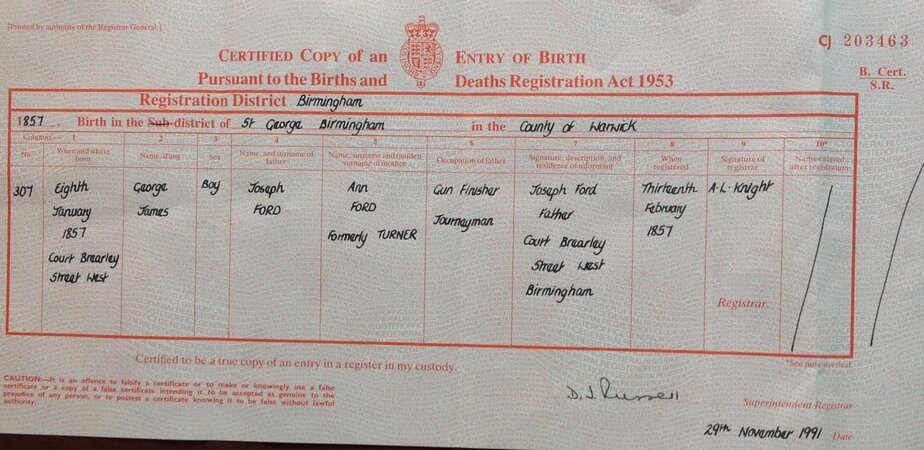 [Printed by authority of the Registrar General.]
CJ 203463
CERTIFIED COPY of an ENTRY OF BIRTH
Pursuant to the Births and Deaths Registration Act 1953
B. Cert.
S.R.
Registration District Birmingham
1857. Birth in the Sub-district of St George Birmingham in the County of Warwick
Columns:— 1 2 3 4 5 6 7 8 9 10*
No. When and where born Name, if any Sex Name, and surname of father Name, surname and maiden surname of mother Occupation of father Signature, description, and residence of informant When registered Signature of registrar Name entered after registration
307 Eighth George Boy Joseph Ann Gun Finisher Joseph Ford Thirteenth A.L. Knight
January James FORD FORD Journeyman Father February
1857 Formerly TURNER 1857
Court Brearley Court Brearley
Street West Street West
Birmingham
Registrar.
Certified to be a true copy of an entry in a register in my custody.
*See note overleaf
CAUTION:—It is an offence to falsify a certificate or to make or knowingly use a false
certificate or a copy of a false certificate intending it to be accepted as genuine to the
prejudice of any person, or to possess a certificate knowing it to be false without lawful
authority.
D. J. Russell
Superintendent Registrar
29th November 1991 Date